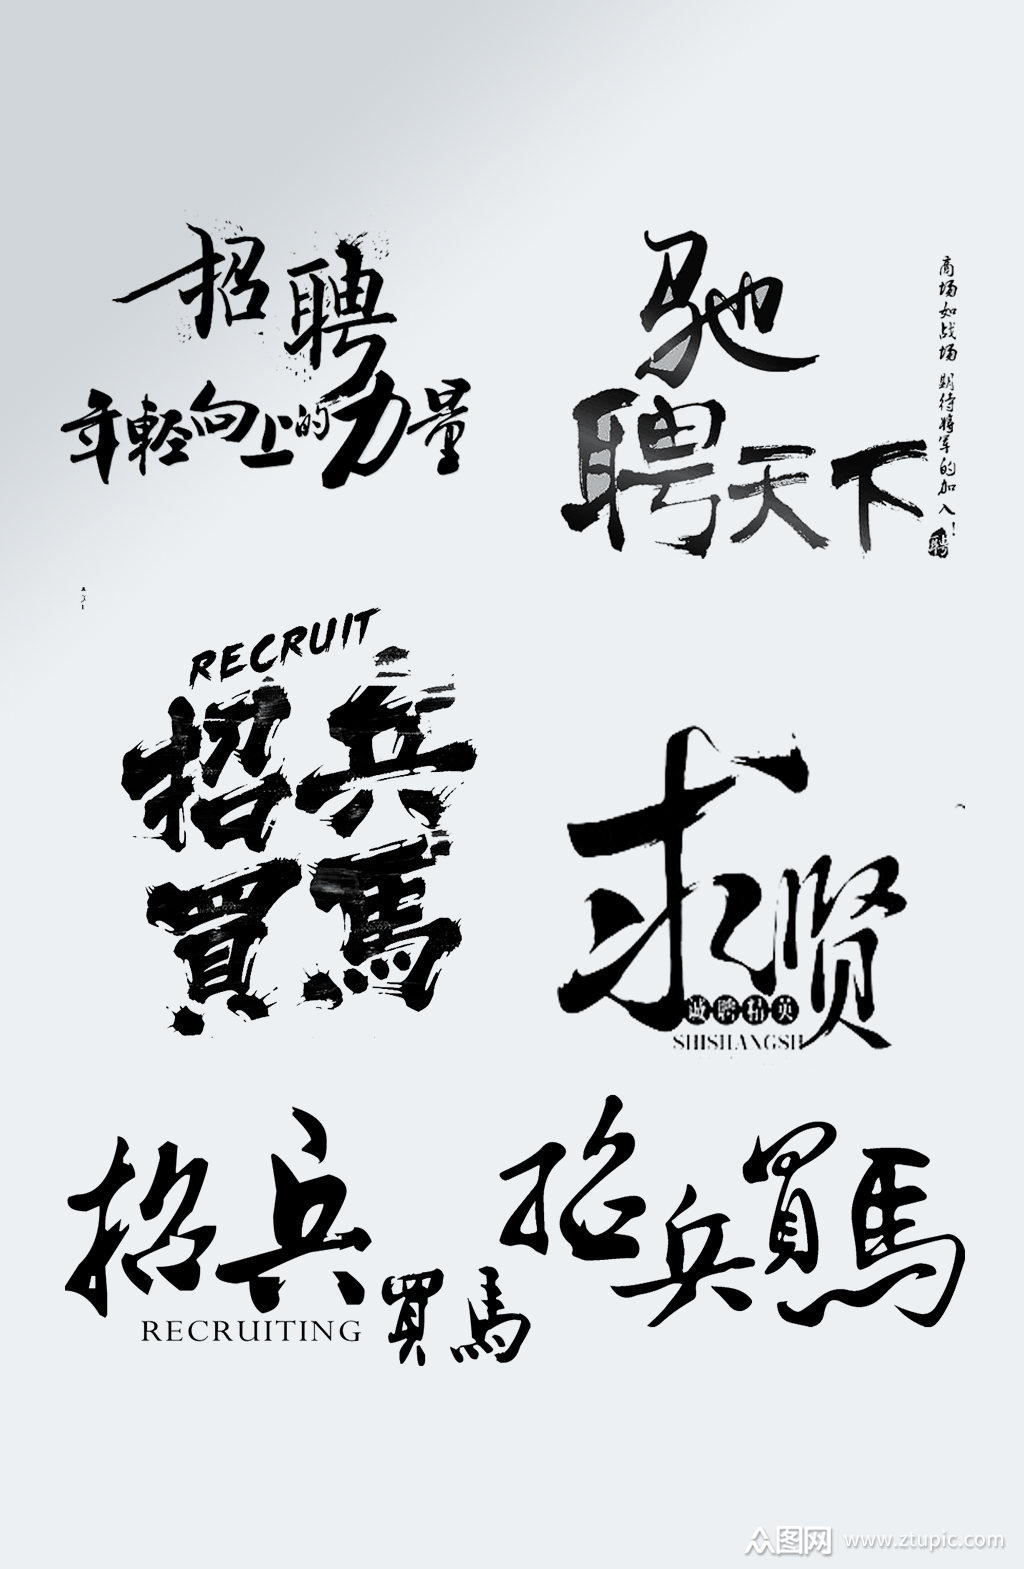 招聘
年輕向上的力量
驰
聘天下
商场如战场 期待将军的加入！
聘
RECRUIT
招兵
買馬
求贤
诚聘精英
SHISHANGSH
招兵
買馬
RECRUITING
招兵買馬
众图网 www.ztupic.com